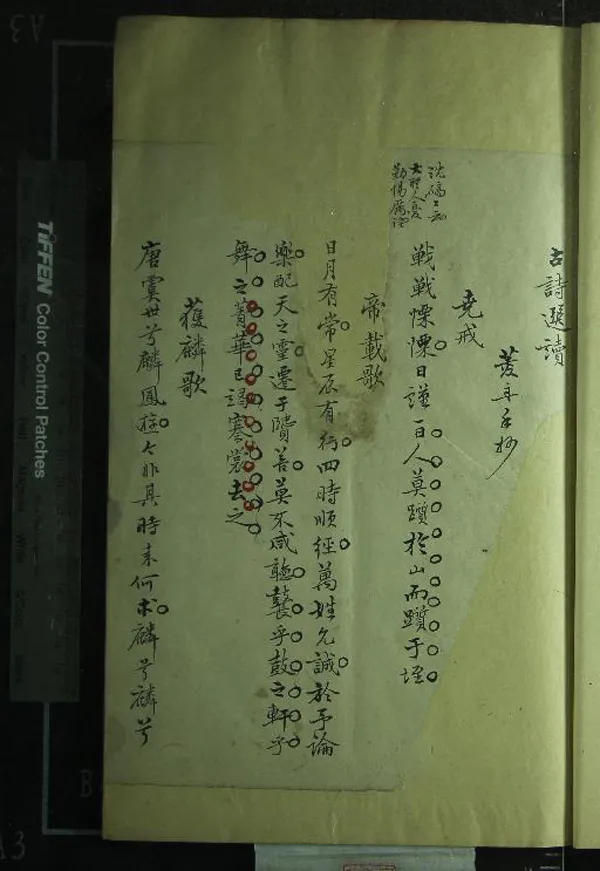 古詩選讀
菱舟手抄
堯戒
戰戰慄慄日謹一日人莫躓於山而躓于垤
帝載歌
日月有常星辰有行四時順經萬姓允誠於予論
樂配天之靈遷于賢善莫不咸聽鼚乎鼓之軒乎
舞之菁華已竭褰裳去之
獲麟歌
唐虞世兮麟鳳遊今非其時來何求麟兮麟兮
TIFFEN Color Control Patches
A3
B
A3